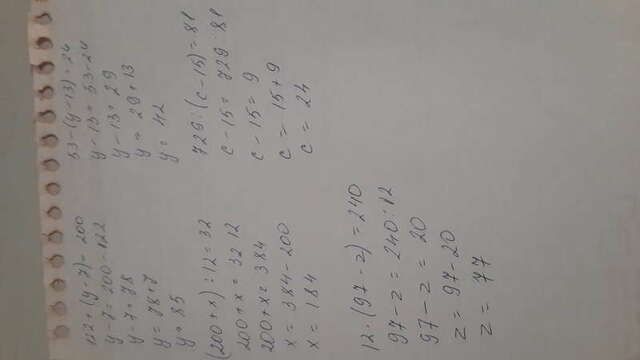 122 + (y - 7) = 200
y - 7 = 200 - 122
y - 7 = 78
y = 78 + 7
y = 85
53 - (y - 13) = 24
y - 13 = 53 - 24
y - 13 = 29
y = 29 + 13
y = 42
(200 + x) : 12 = 32
200 + x = 32 12
200 + x = 384
x = 384 - 200
x = 184
729 : (c - 15) = 81
c - 15 = 729 81
c - 15 = 9
c = 15 + 9
c = 24
12 · (97 - z) = 240
97 - z = 240 : 12
97 - z = 20
z = 97 - 20
z = 77